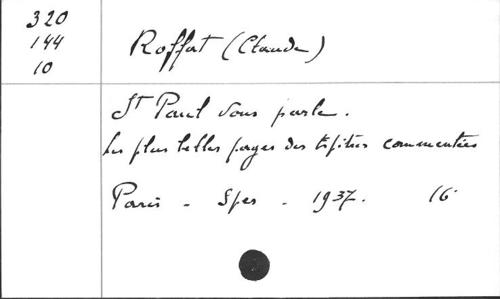 320
144
10
Roffat (Claude)
St Paul vous parle.
Les plus belles pages des Epitres commentées
Paris - Spes - 1937. 16